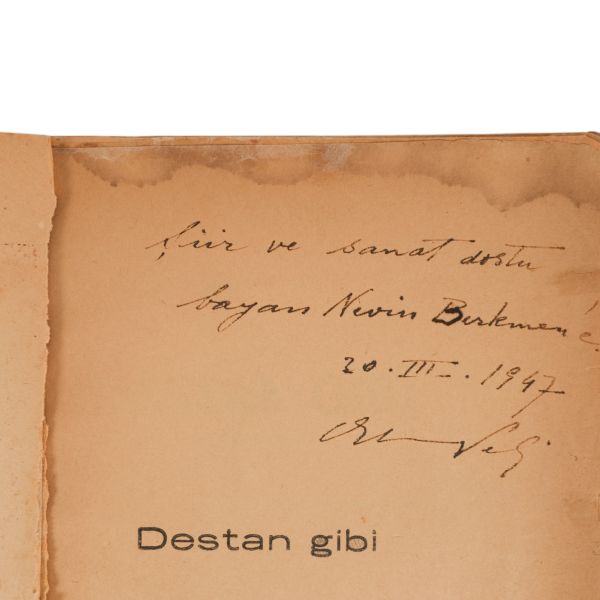 Şiir ve sanat dostu
bayan Nevin Berkmen'e.
20.III.1947
Orhan Veli
Destan gibi